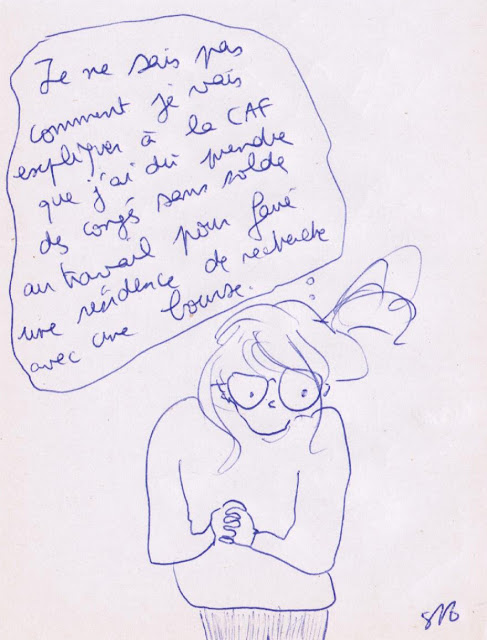 Je ne sais pas
comment je vais
expliquer à la CAF
que j'ai dû prendre
des congés sans solde
au travail pour faire
une résidence de recherche
avec une bourse.